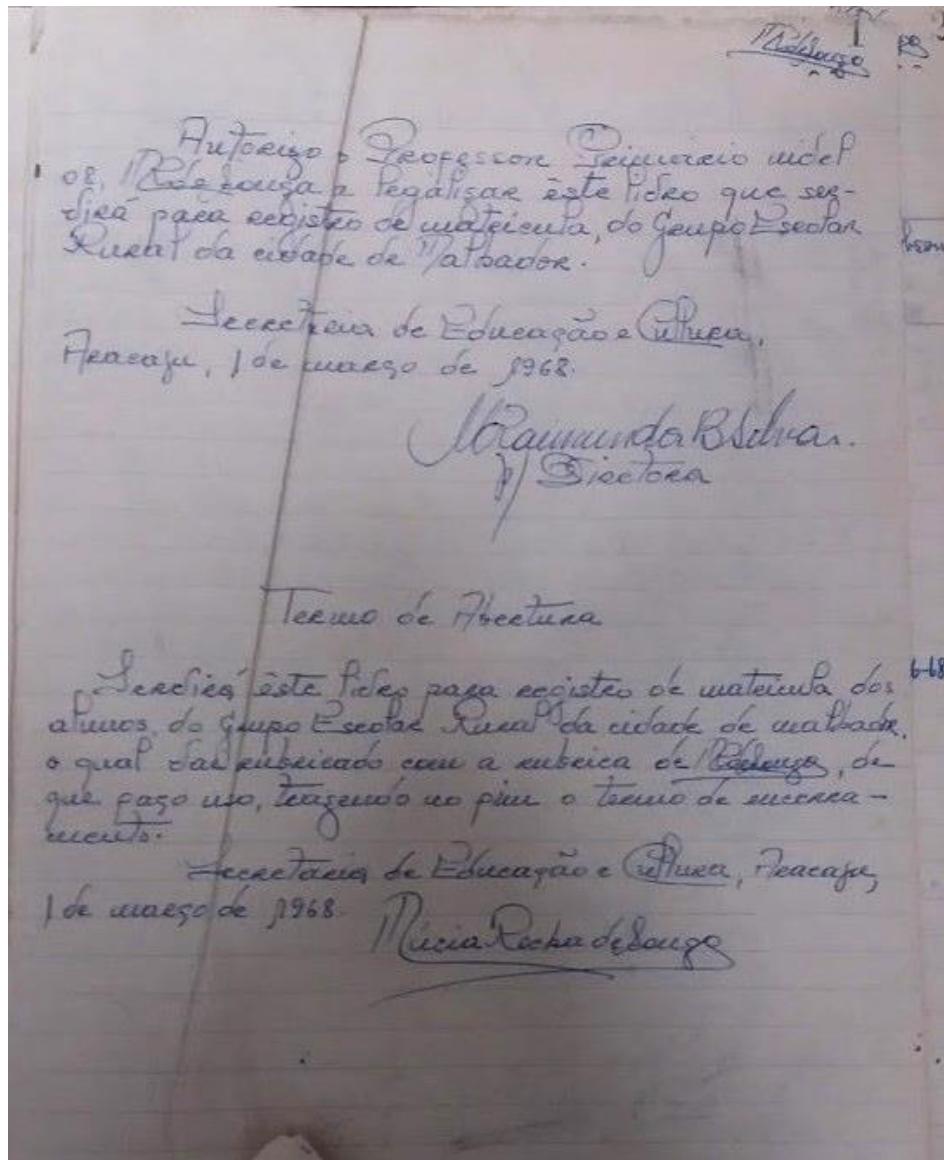 MRdeSouza
Autorizo o Professor Primario nível
08, MRdeSouza a legalizar êste livro que ser-
virá para registro de matricula, do Grupo Escolar
Rural da cidade de Malhador.
Secretaria de Educação e Cultura,
Aracaju, 1 de março de 1968.
MRaimunda B Silva.
p/ Directora
Termo de Abertura
6-68
Servirá êste livro para registro de matricula dos
alunos, do Grupo Escolar Rural da cidade de malhador,
o qual vai rubricado com a rubrica de MRdeSouza, de
que faço uso, trazendo no fim o termo de encerra-
mento.
Secretaria de Educação e Cultura, Aracaju,
1 de março de 1968.
Mucia Rocha de Souza